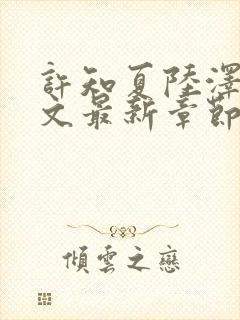 許知夏陸澤
文最新章節
傾雲之戀